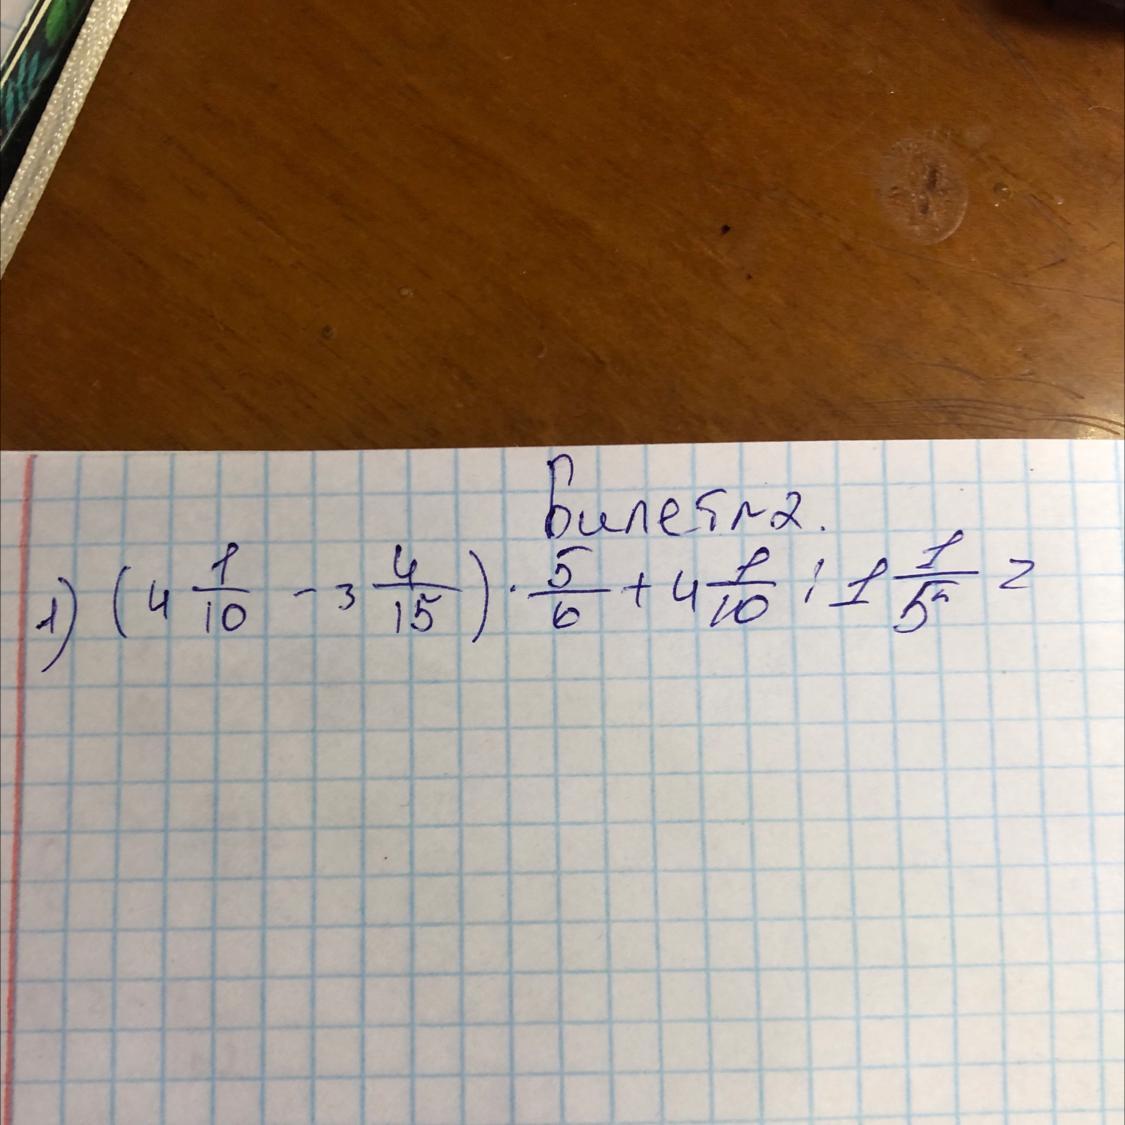 Билет №2.
1) (4 1/10 - 3 4/15) · 5/6 + 4 1/10 : 1 1/5 =